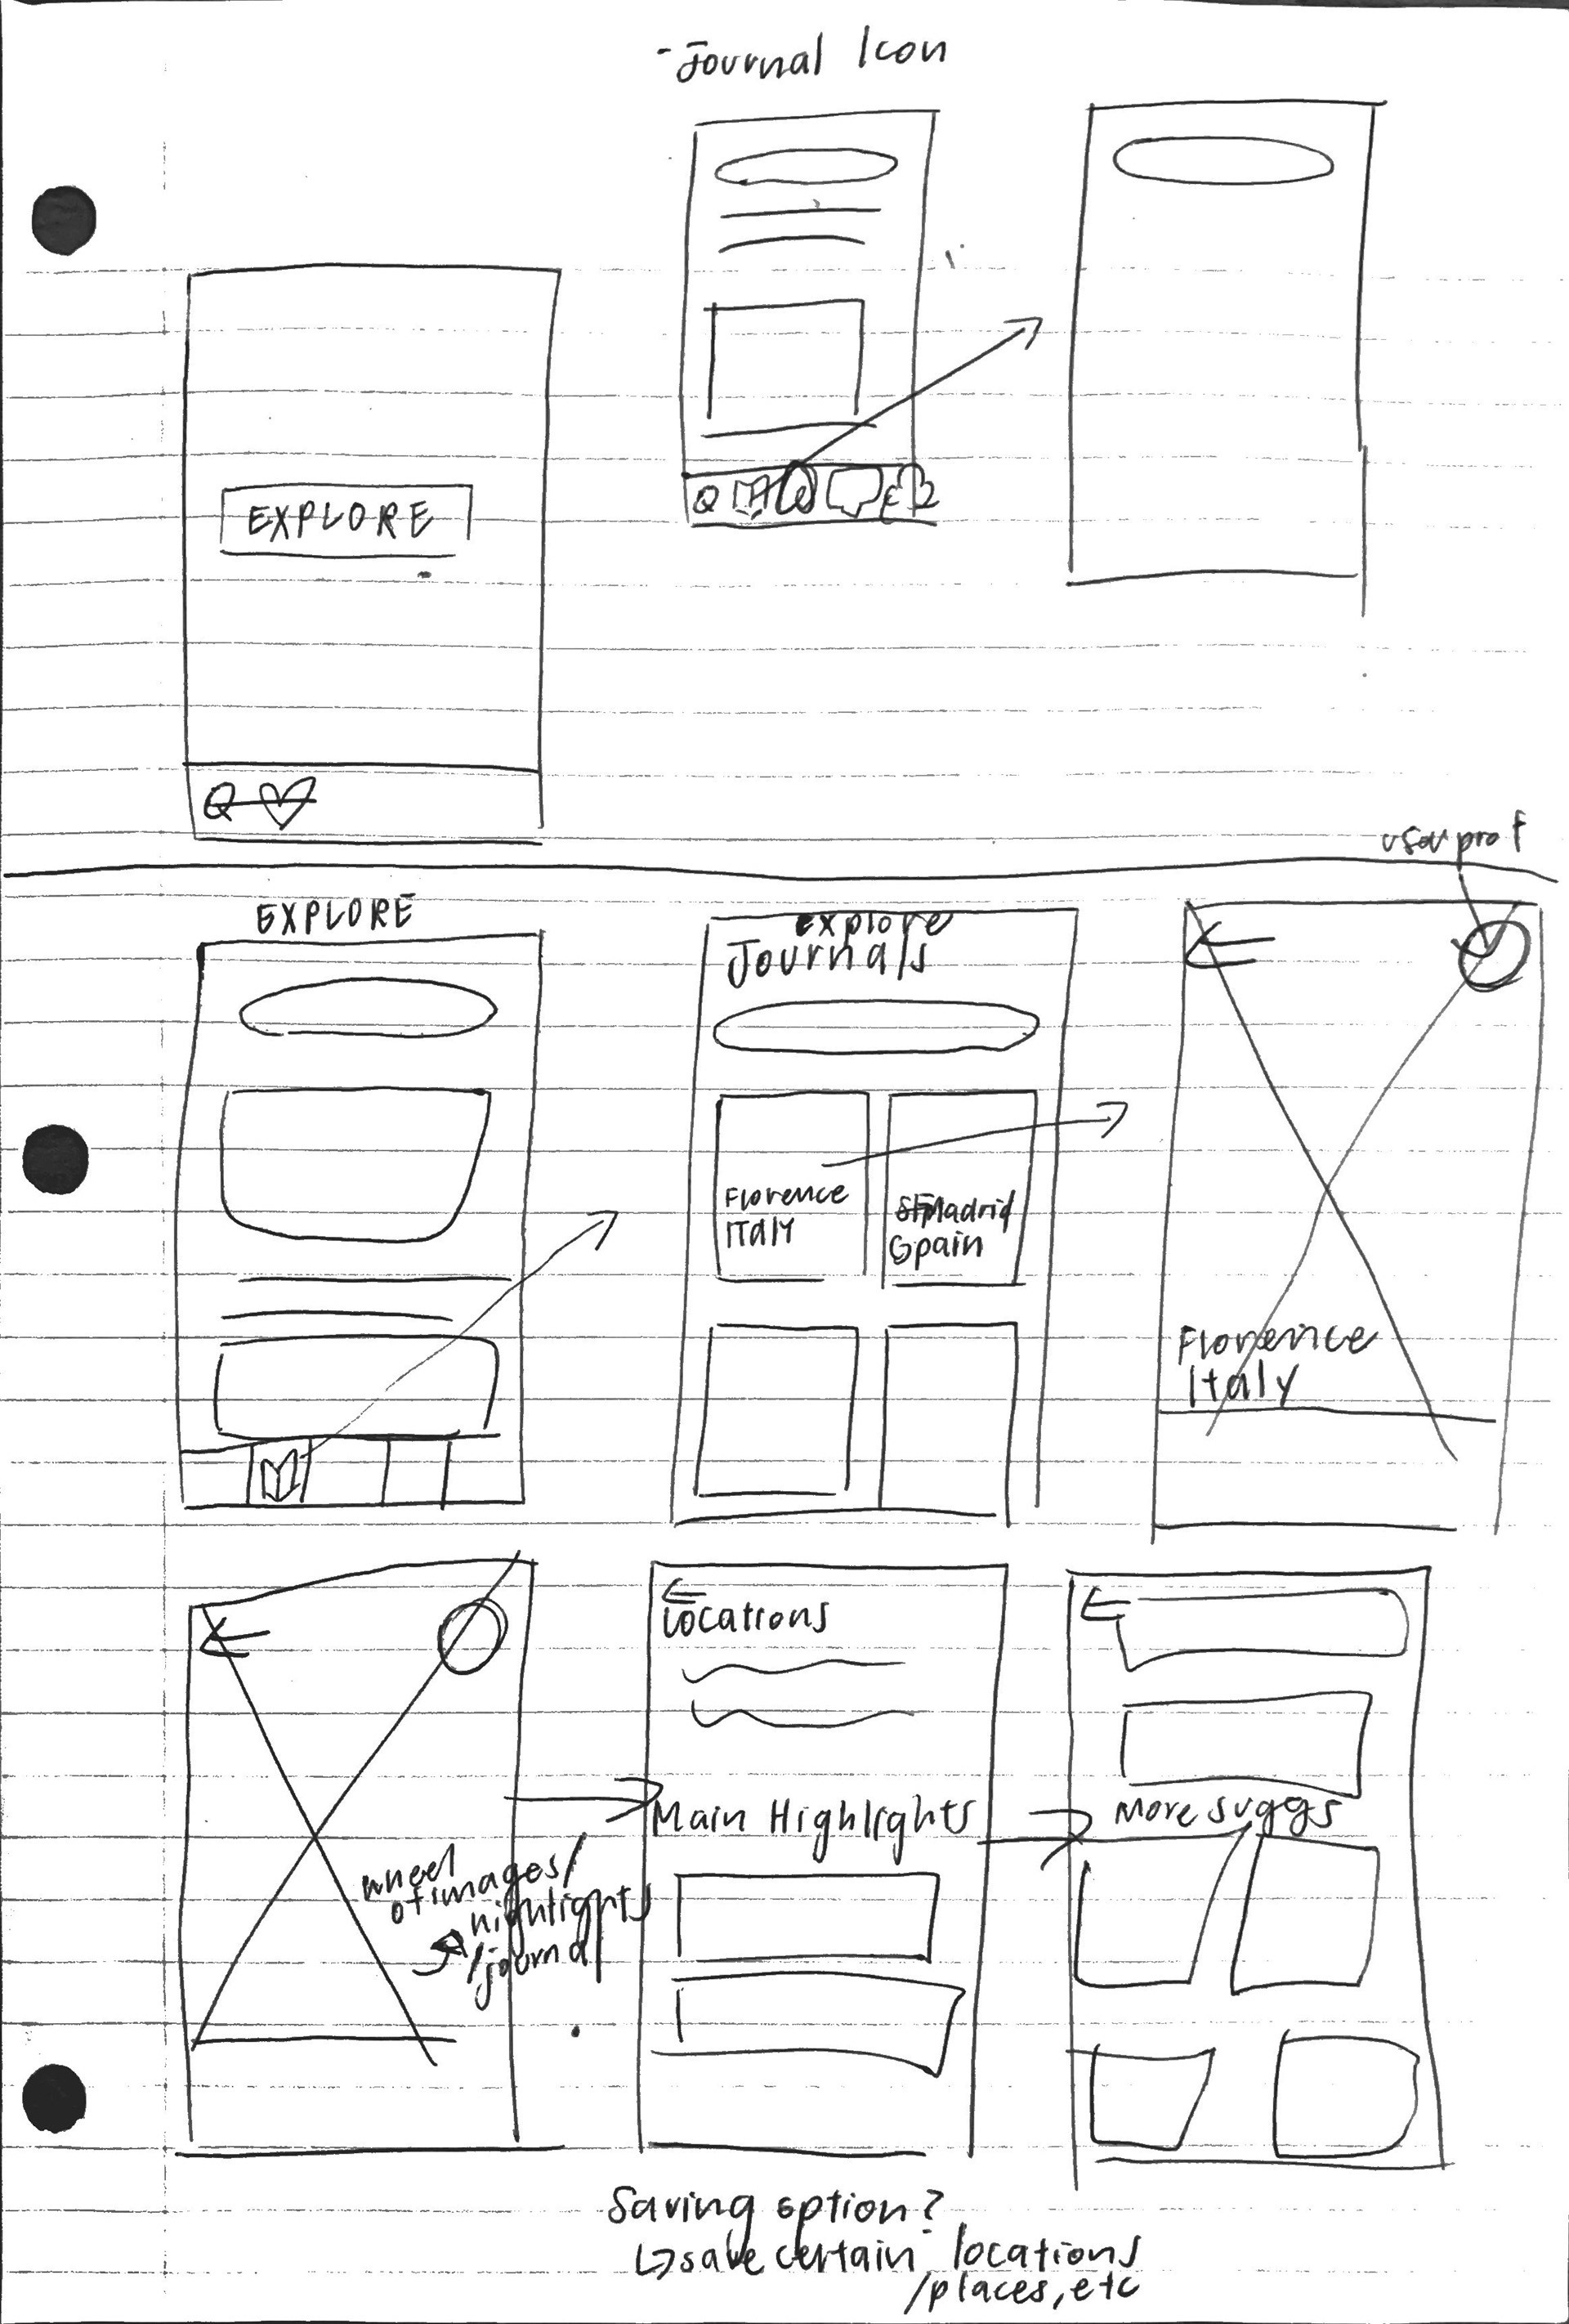 - Journal Icon
EXPLORE
user prof
EXPLORE
Explore
Journals
Florence
ITALY
Madrid
Spain
Florence
Italy
wheel
of images/
highlights
/journal
Locations
Main Highlights
More suggs
Saving option?
↳ save certain locations
/places, etc